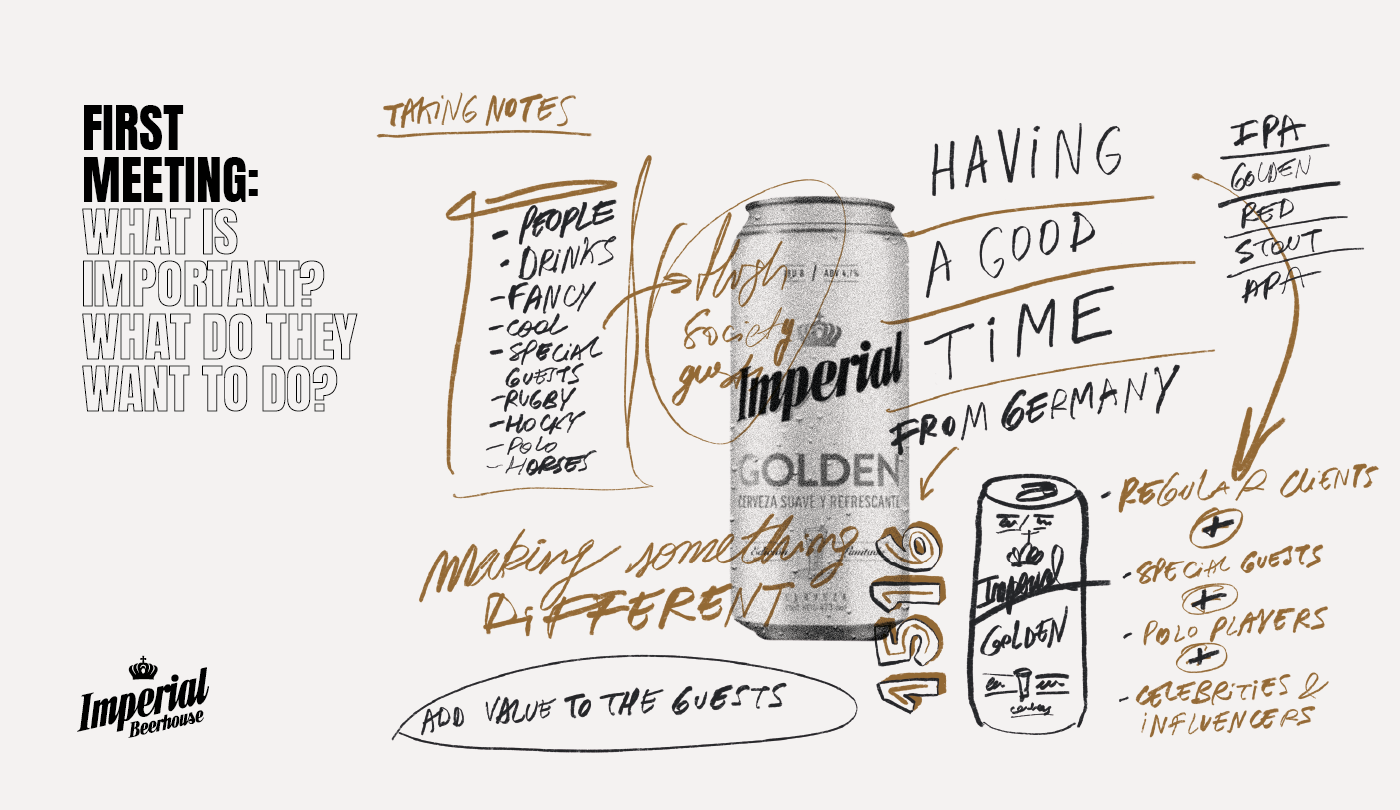 FIRST
MEETING:
WHAT IS
IMPORTANT?
WHAT DO THEY
WANT TO DO?
TAKING NOTES
- PEOPLE
- DRINKS
- FANCY
- COOL
- SPECIAL
GUESTS
- RUGBY
- HOCKY
- POLO
- HORSES
High
Society
guest
IBU 8 / ABV 4,7%
Imperial
GOLDEN
CERVEZA SUAVE Y REFRESCANTE
CERVEZA
HAVING
A GOOD
TIME
FROM GERMANY
1516
IPA
GOLDEN
RED
STOUT
APA
making something
DIFFERENT
ADD VALUE TO THE GUESTS
Imperial
GOLDEN
- REGULAR CLIENTS
+
- SPECIAL GUESTS
+
- POLO PLAYERS
+
- CELEBRITIES &
INFLUENCERS
Imperial
Beerhouse